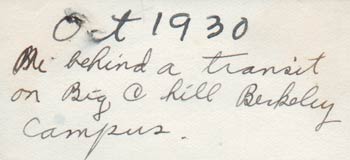 Oct 1930
Me behind a transit
on Big C hill Berkeley
Campus.